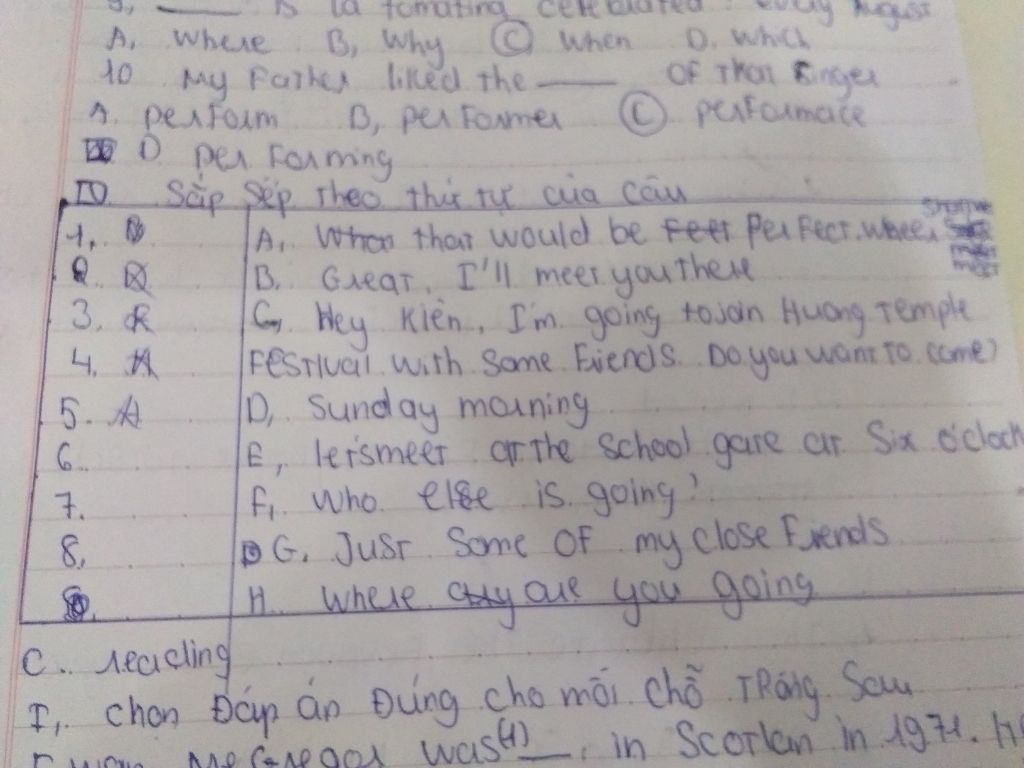 9, ___ is la tomating celebrated? every August
A, Where B, Why C When D. Which
10 My Father liked the ___ OF That singer
A. perform B, performer C performace
D performing
IV. Sắp Sếp Theo Thứ Tự của Câu
1, D A, that would be perfect. where should meet
2 B. Great, I'll meet you there
3. C, Hey Kiên, I'm going to join Huong Temple
4. A Festival with some friends. Do you want to come?
5. A D, Sunday morning
6. E, let's meet at the school gate at six o'clock
7. F, Who else is going?
8, G. Just some OF my close friends
H. Where are you going
C. reading
I, chọn Đáp án Đúng cho mỗi chỗ Trống Sau
was (1) ___ in Scotlan in 1971. He